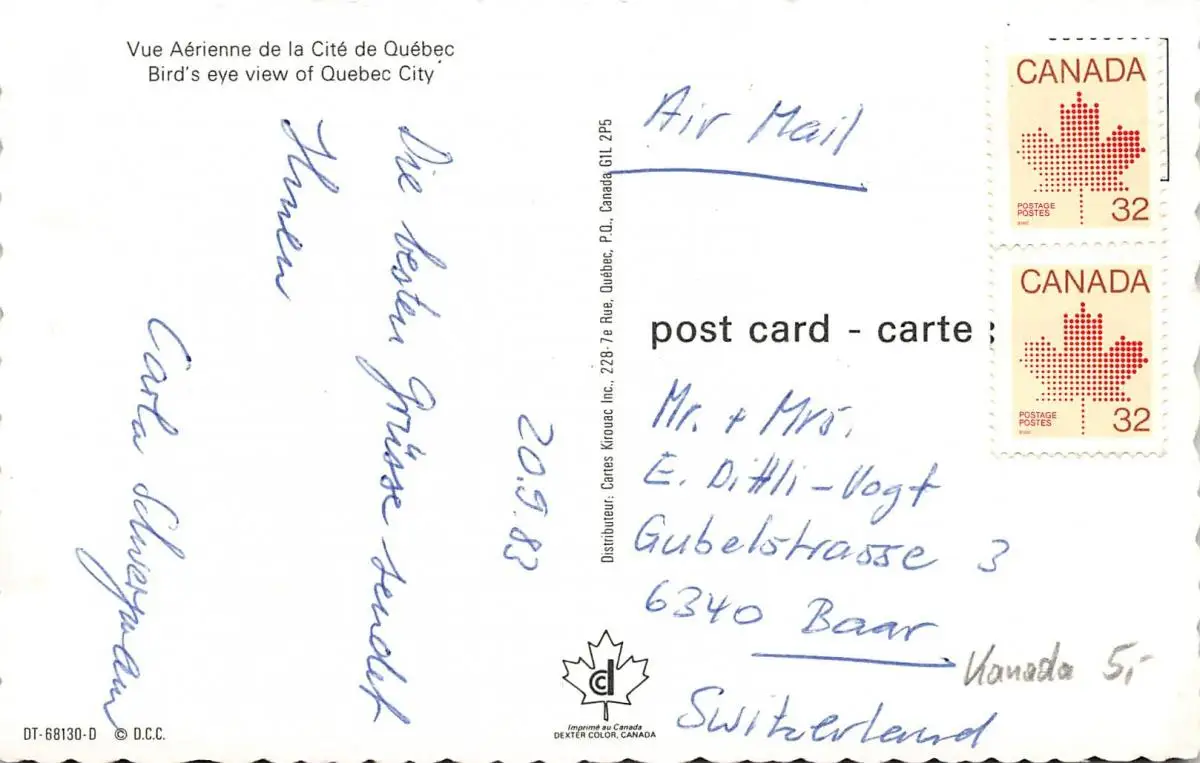 Vue Aérienne de la Cité de Québec
Bird's eye view of Quebec City
20.9.83
Die besten Grüsse sendet
Ihnen
Carla
DT-68130-D © D.C.C.
Distributeur: Cartes Kirouac Inc., 228-7e Rue, Québec, P.Q., Canada G1L 2P5
cd
Imprimé au Canada
DEXTER COLOR, CANADA
Air Mail
CANADA
POSTAGE
POSTES
32
CANADA
POSTAGE
POSTES
32
post card - carte
Mr. + Mrs.
E. Dittli-Vogt
Gubelstrasse 3
6340 Baar
Switzerland
Kanada 5,-